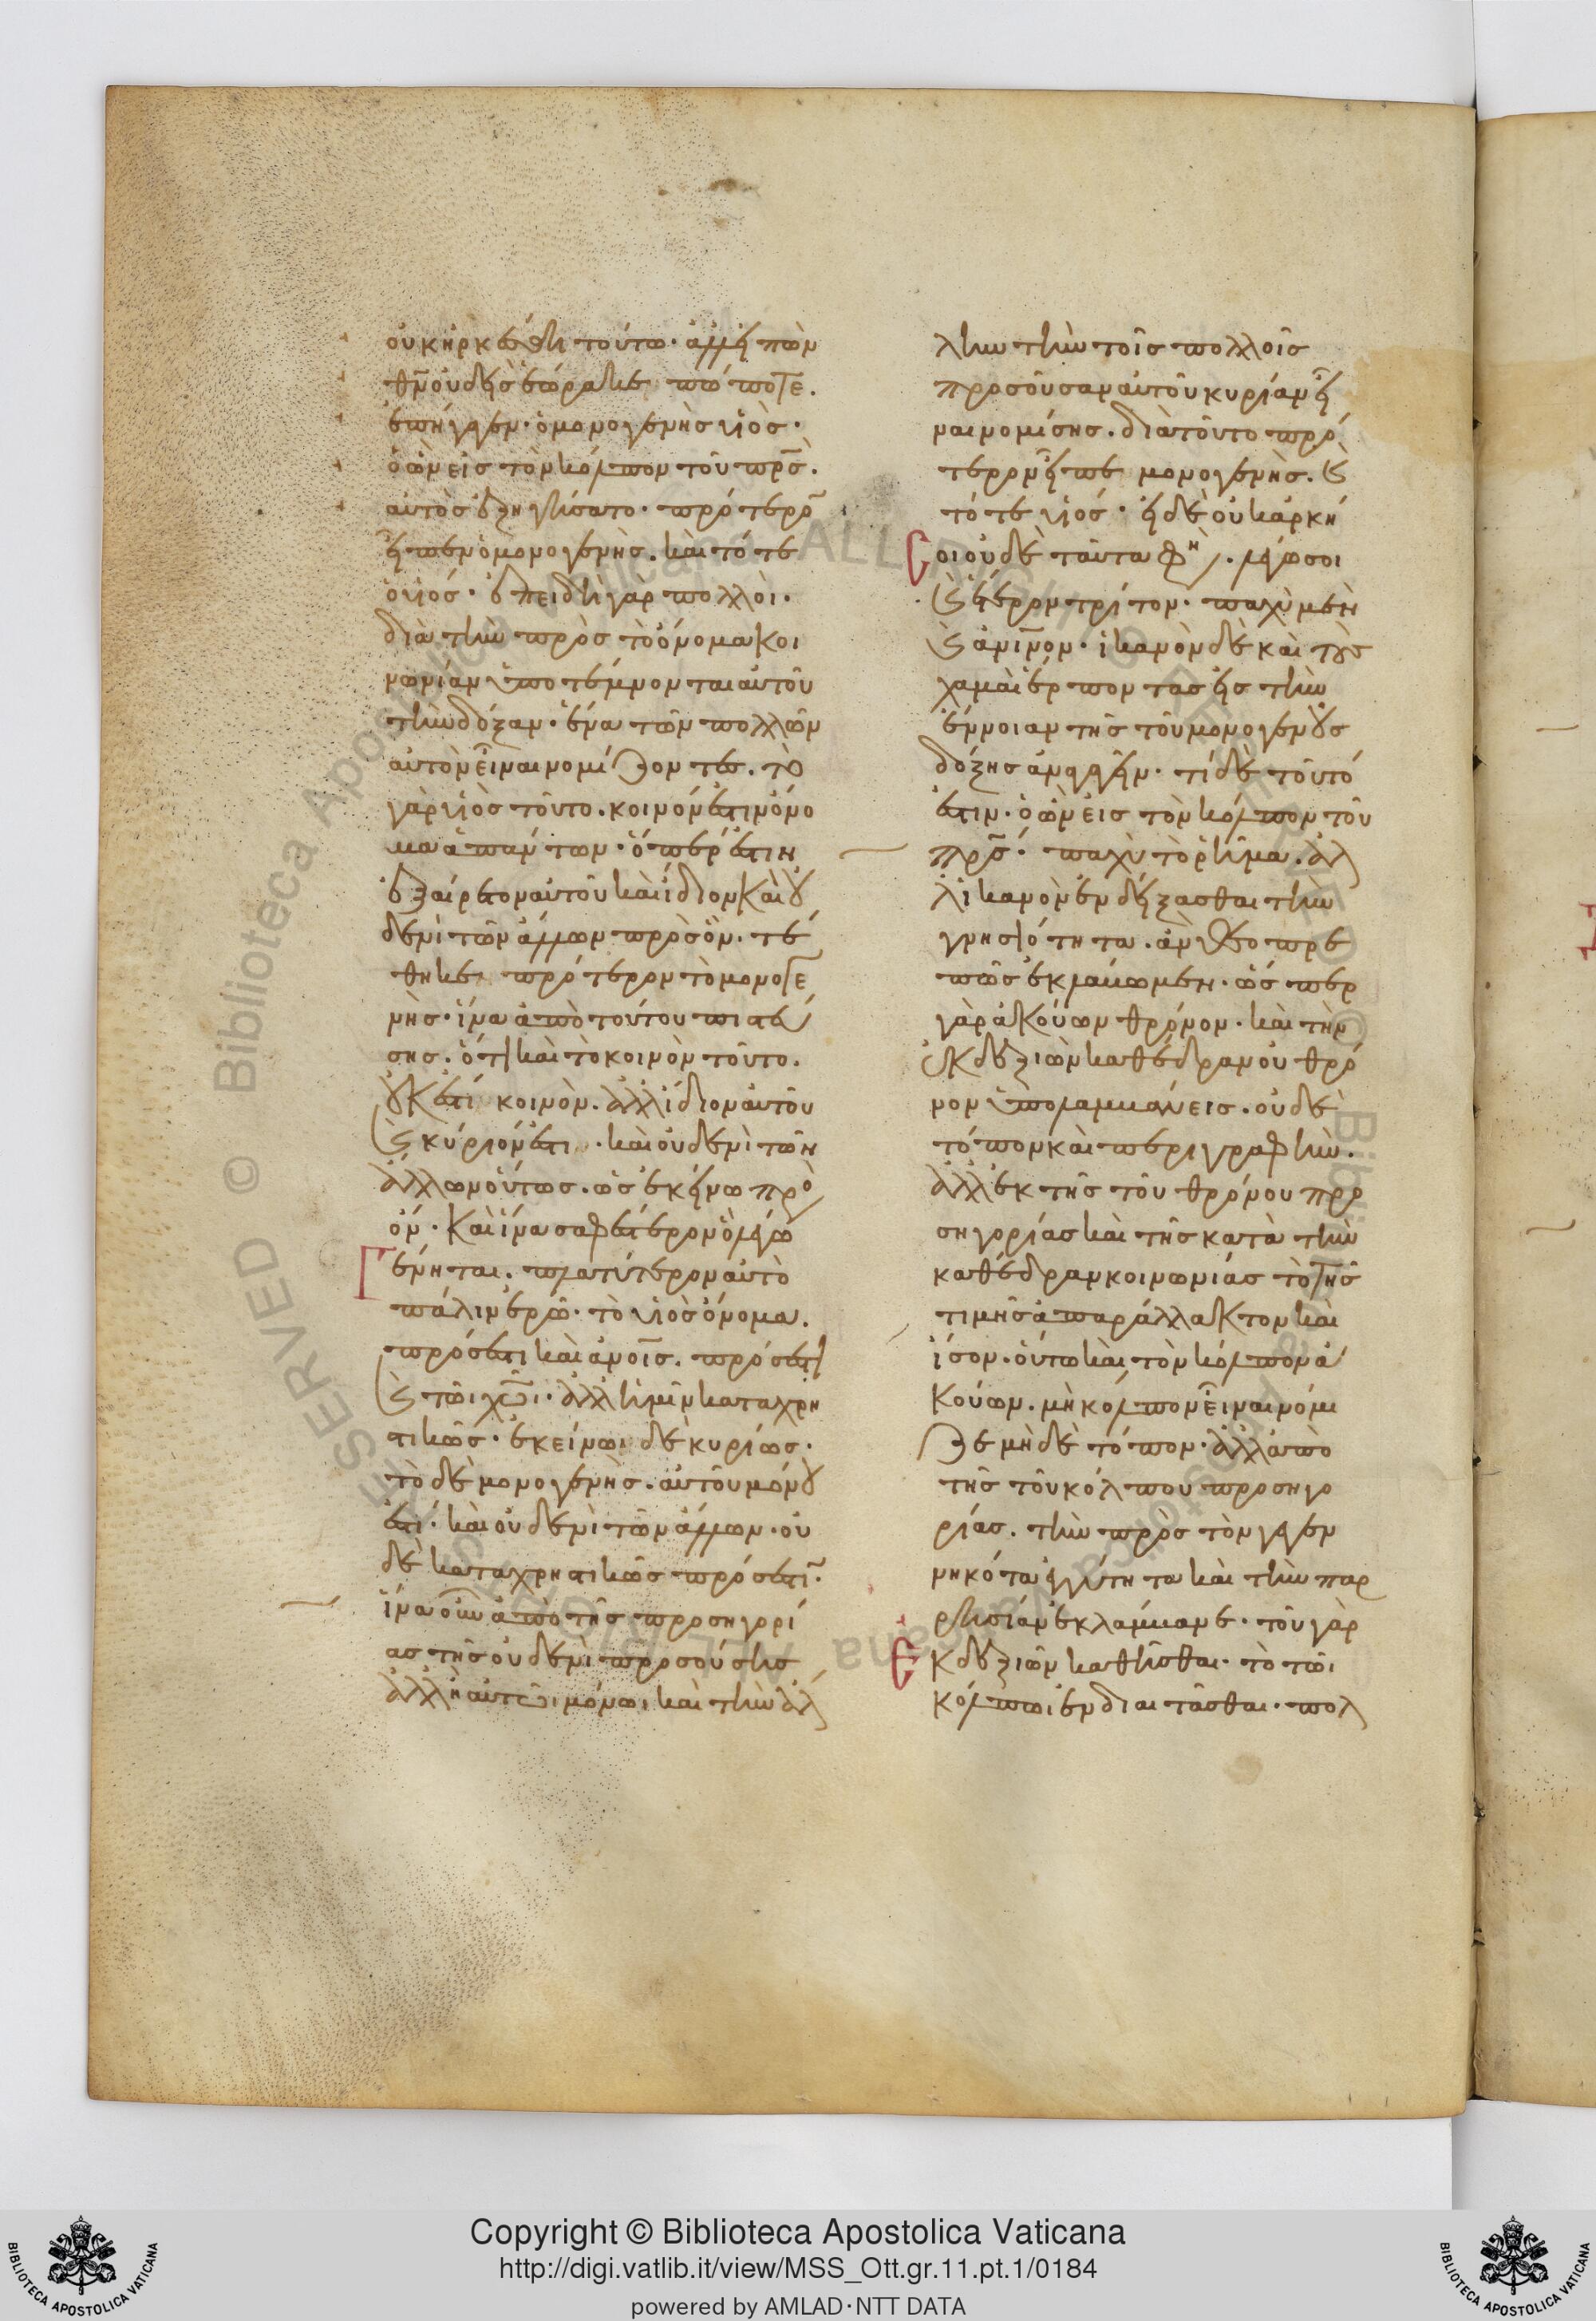 οὐκ ἠρκέσθη τούτω· ἀλλ' εἰπὼν
θν οὐδεὶς ἑώρακε πώποτε.
ἐπήγαγεν· ὁ μονογενὴς υἱὸς·
ὁ ὢν εἰς τὸν κόλπον τοῦ πρς.
αὐτὸς ἐξηγήσατο· πρότερον
εἶπεν ὁ μονογενὴς. καὶ τότε
ὁ υἱός· ἐπειδὴ γὰρ πολλοὶ.
διὰ τὴν πρὸς τὸ ὄνομα κοι
νωνίαν ὑποτέμνονται αὐτοῦ
τὴν δόξαν· ἕνα τῶν πολλῶν
αὐτὸν εἶναι νομίζοντες. τὸ
γὰρ υἱὸς τοῦτο. κοινόν ἐστιν ὄνο
μα ἁπάντων· ὅπερ ἐστιν
ἐξαίρετον αὐτοῦ καὶ ἴδιον καὶ οὐ
δενὶ τῶν ἄλλων προσὸν. τέ
θηκε πρότερον τὸ μονογε
νής· ἵνα ἀπὸ τούτου πιστεύ
σης. ὅτι καὶ τὸ κοινὸν τοῦτο.
οὐκ ἐστί κοινὸν. ἀλλ' ἴδιον αὐτοῦ
καὶ κύριόν ἐστι. καὶ οὐδενὶ τῶν
ἄλλων οὕτως. ὡς ἐκείνω προσ
όν· καὶ ἵνα σαφέστερον ὃ λέγω
γένηται. πλατύτερον αὐτὸ
πάλιν ἐρῶ· τὸ υἱὸς ὄνομα.
πρόσεστι καὶ ἀνοις. πρόσεστι
καὶ τῶι χῶι· ἀλλ' ἡμῖν καταχρη
στικῶς· ἐκείνωι δὲ κυρίως·
τὸ δὲ μονογενὴς. αὐτοῦ μόνου
ἐστί· καὶ οὐδενὶ τῶν ἄλλων· οὐ
δὲ καταχρηστικῶς πρόσεστιν·
ἵνα οὖν ἀπὸ τῆς προσηγορί
ας τῆς οὐδενὶ προσούσης
ἀλλ' ἢ αὐτῶι μόνωι καὶ τὴν ἄλ
λην τὴν τοῖς πολλοῖς
προσοῦσαν αὐτοῦ κυρίαν εἶ
ναι νομίσης. διὰ τοῦτο πρό
τερον εἶπε μονογενὴς. καὶ
τότε υἱός· εἰ δὲ οὐκ ἀρκεῖ
σοι οὐδὲ ταῦτα φη. λέγω σοι
καὶ ἕτερον τρίτον· παχὺ μὲν
καὶ ἀνινον· ἱκανὸν δὲ καὶ τοὺς
χαμαὶ ἕρποντας εἰς τὴν
ἔννοιαν τῆς τοῦ μονογενοῦς
δόξης ἀναγαγεῖν· τί δὲ τοῦτό
ἐστιν· ὁ ὢν εἰς τὸν κόλπον τοῦ
πρς· παχὺ τὸ ῥῆμα. ἀλ
λ' ἱκανὸν ἐνδείξασθαι τὴν
γνησιότητα. ἂν θεοπρε
πῶς ἐκλάβωμεν. ὥσπερ
γὰρ ἀκούων θρόνον· καὶ τὴν
ἐκ δεξιῶν καθέδραν οὐ θρό
νον ὑπολαμβάνεις. οὐδὲ
τόπον καὶ περιγραφὴν.
ἀλλ' ἐκ τῆς τοῦ θρόνου προ
σηγορίας καὶ τῆς κατὰ τὴν
καθέδραν κοινωνίας τὸ τῆς
τιμῆς ἀπαράλλακτον καὶ
ἴσον. οὕτω καὶ τὸν κόλπον ἀ
κούων. μὴ κόλπον εἶναι νόμι
ζε μὴ δὲ τόπον· ἀλλ' ἀπὸ
τῆς τοῦ κόλπου προσηγο
ρίας. τὴν πρὸς τὸν γεγεν
νηκότα ἐγγύτητα καὶ τὴν παρ
ρησίαν ἐκλάμβανε. τοῦ γὰρ
ἐκ δεξιῶν καθῆσθαι. τὸ τῶι
κόλπωι ἐνδιαιτᾶσθαι. πολ
Copyright © Biblioteca Apostolica Vaticana
http://digi.vatlib.it/view/MSS_Ott.gr.11.pt.1/0184
powered by AMLAD·NTT DATA
BIBLIOTECA APOSTOLICA VATICANA
BIBLIOTECA APOSTOLICA VATICANA